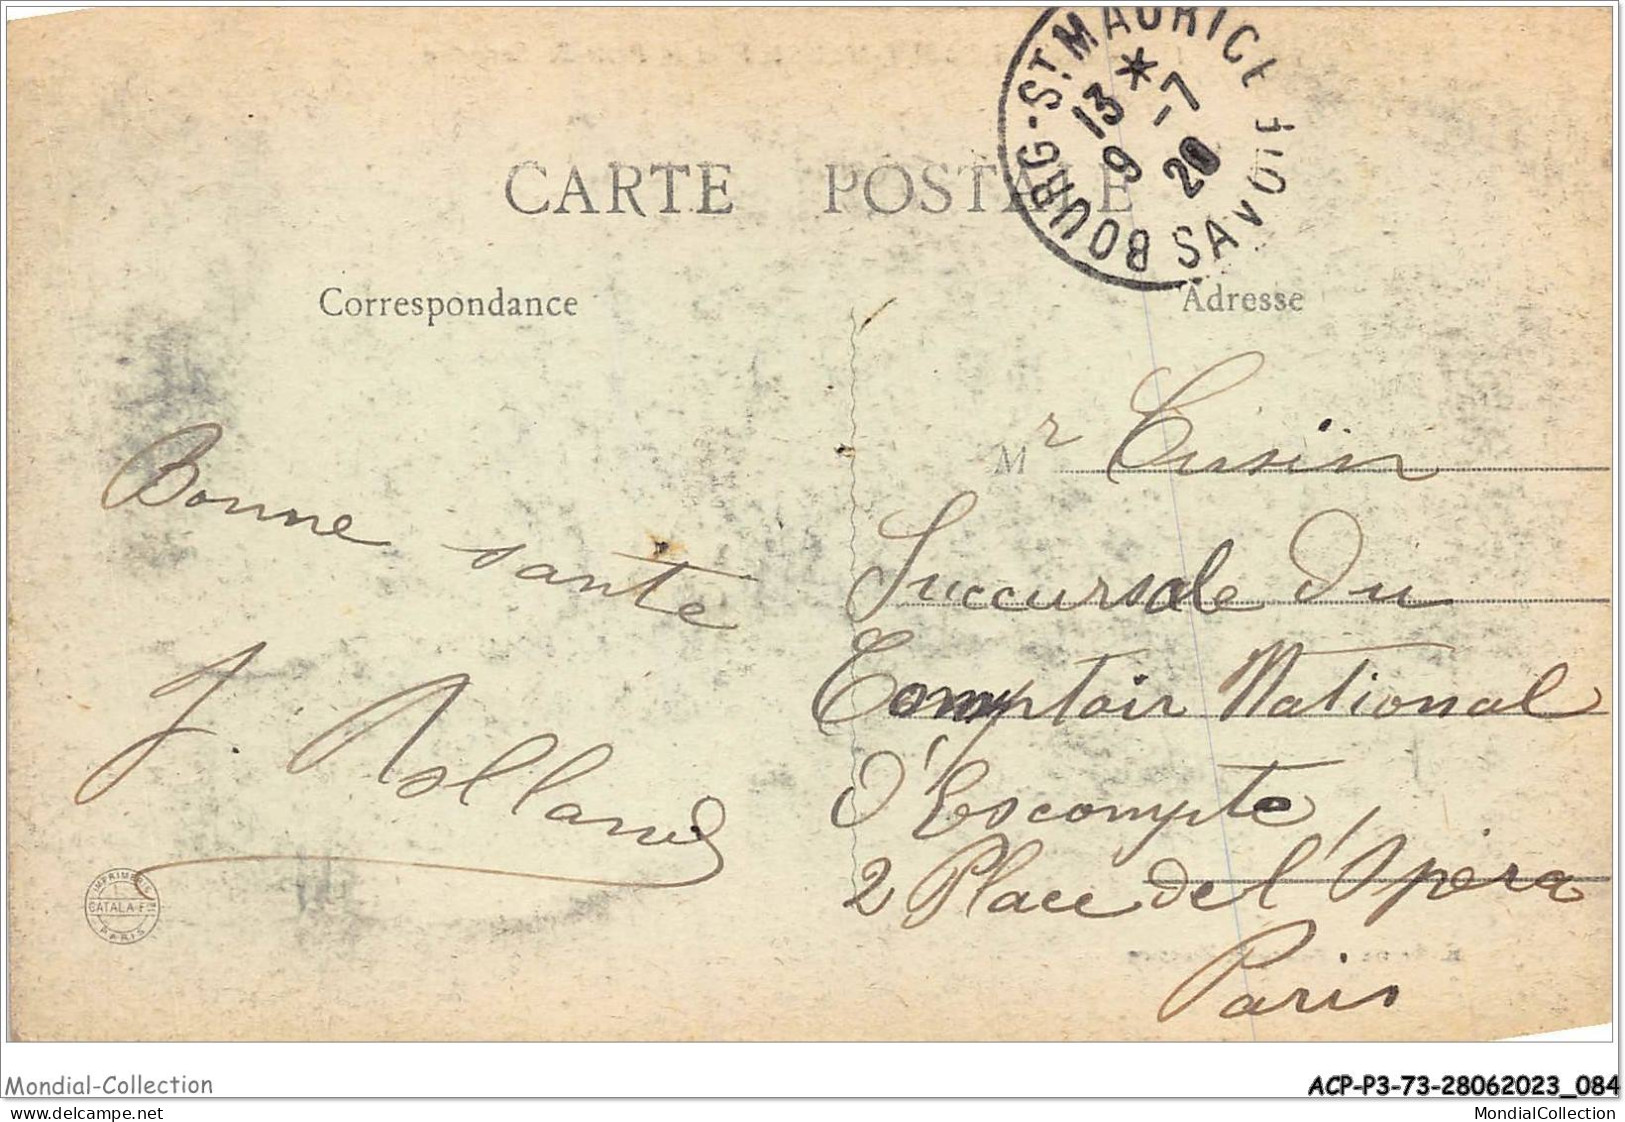 BOURG-ST. MAURICE
SAVOIE
13 * -7
9 20
CARTE POSTALE
Correspondance
Adresse
Mr Cusin
Bonne santé
Succursale Du
J. Rolland
Comptoir National
D'Escompte,
2 Place de l'Opéra
Paris
IMPRIMERIE
CATALA Fres
PARIS
Mondial-Collection
ACP-P3-73-28062023_084
MondialCollection
delcampe.net
MondialCollection